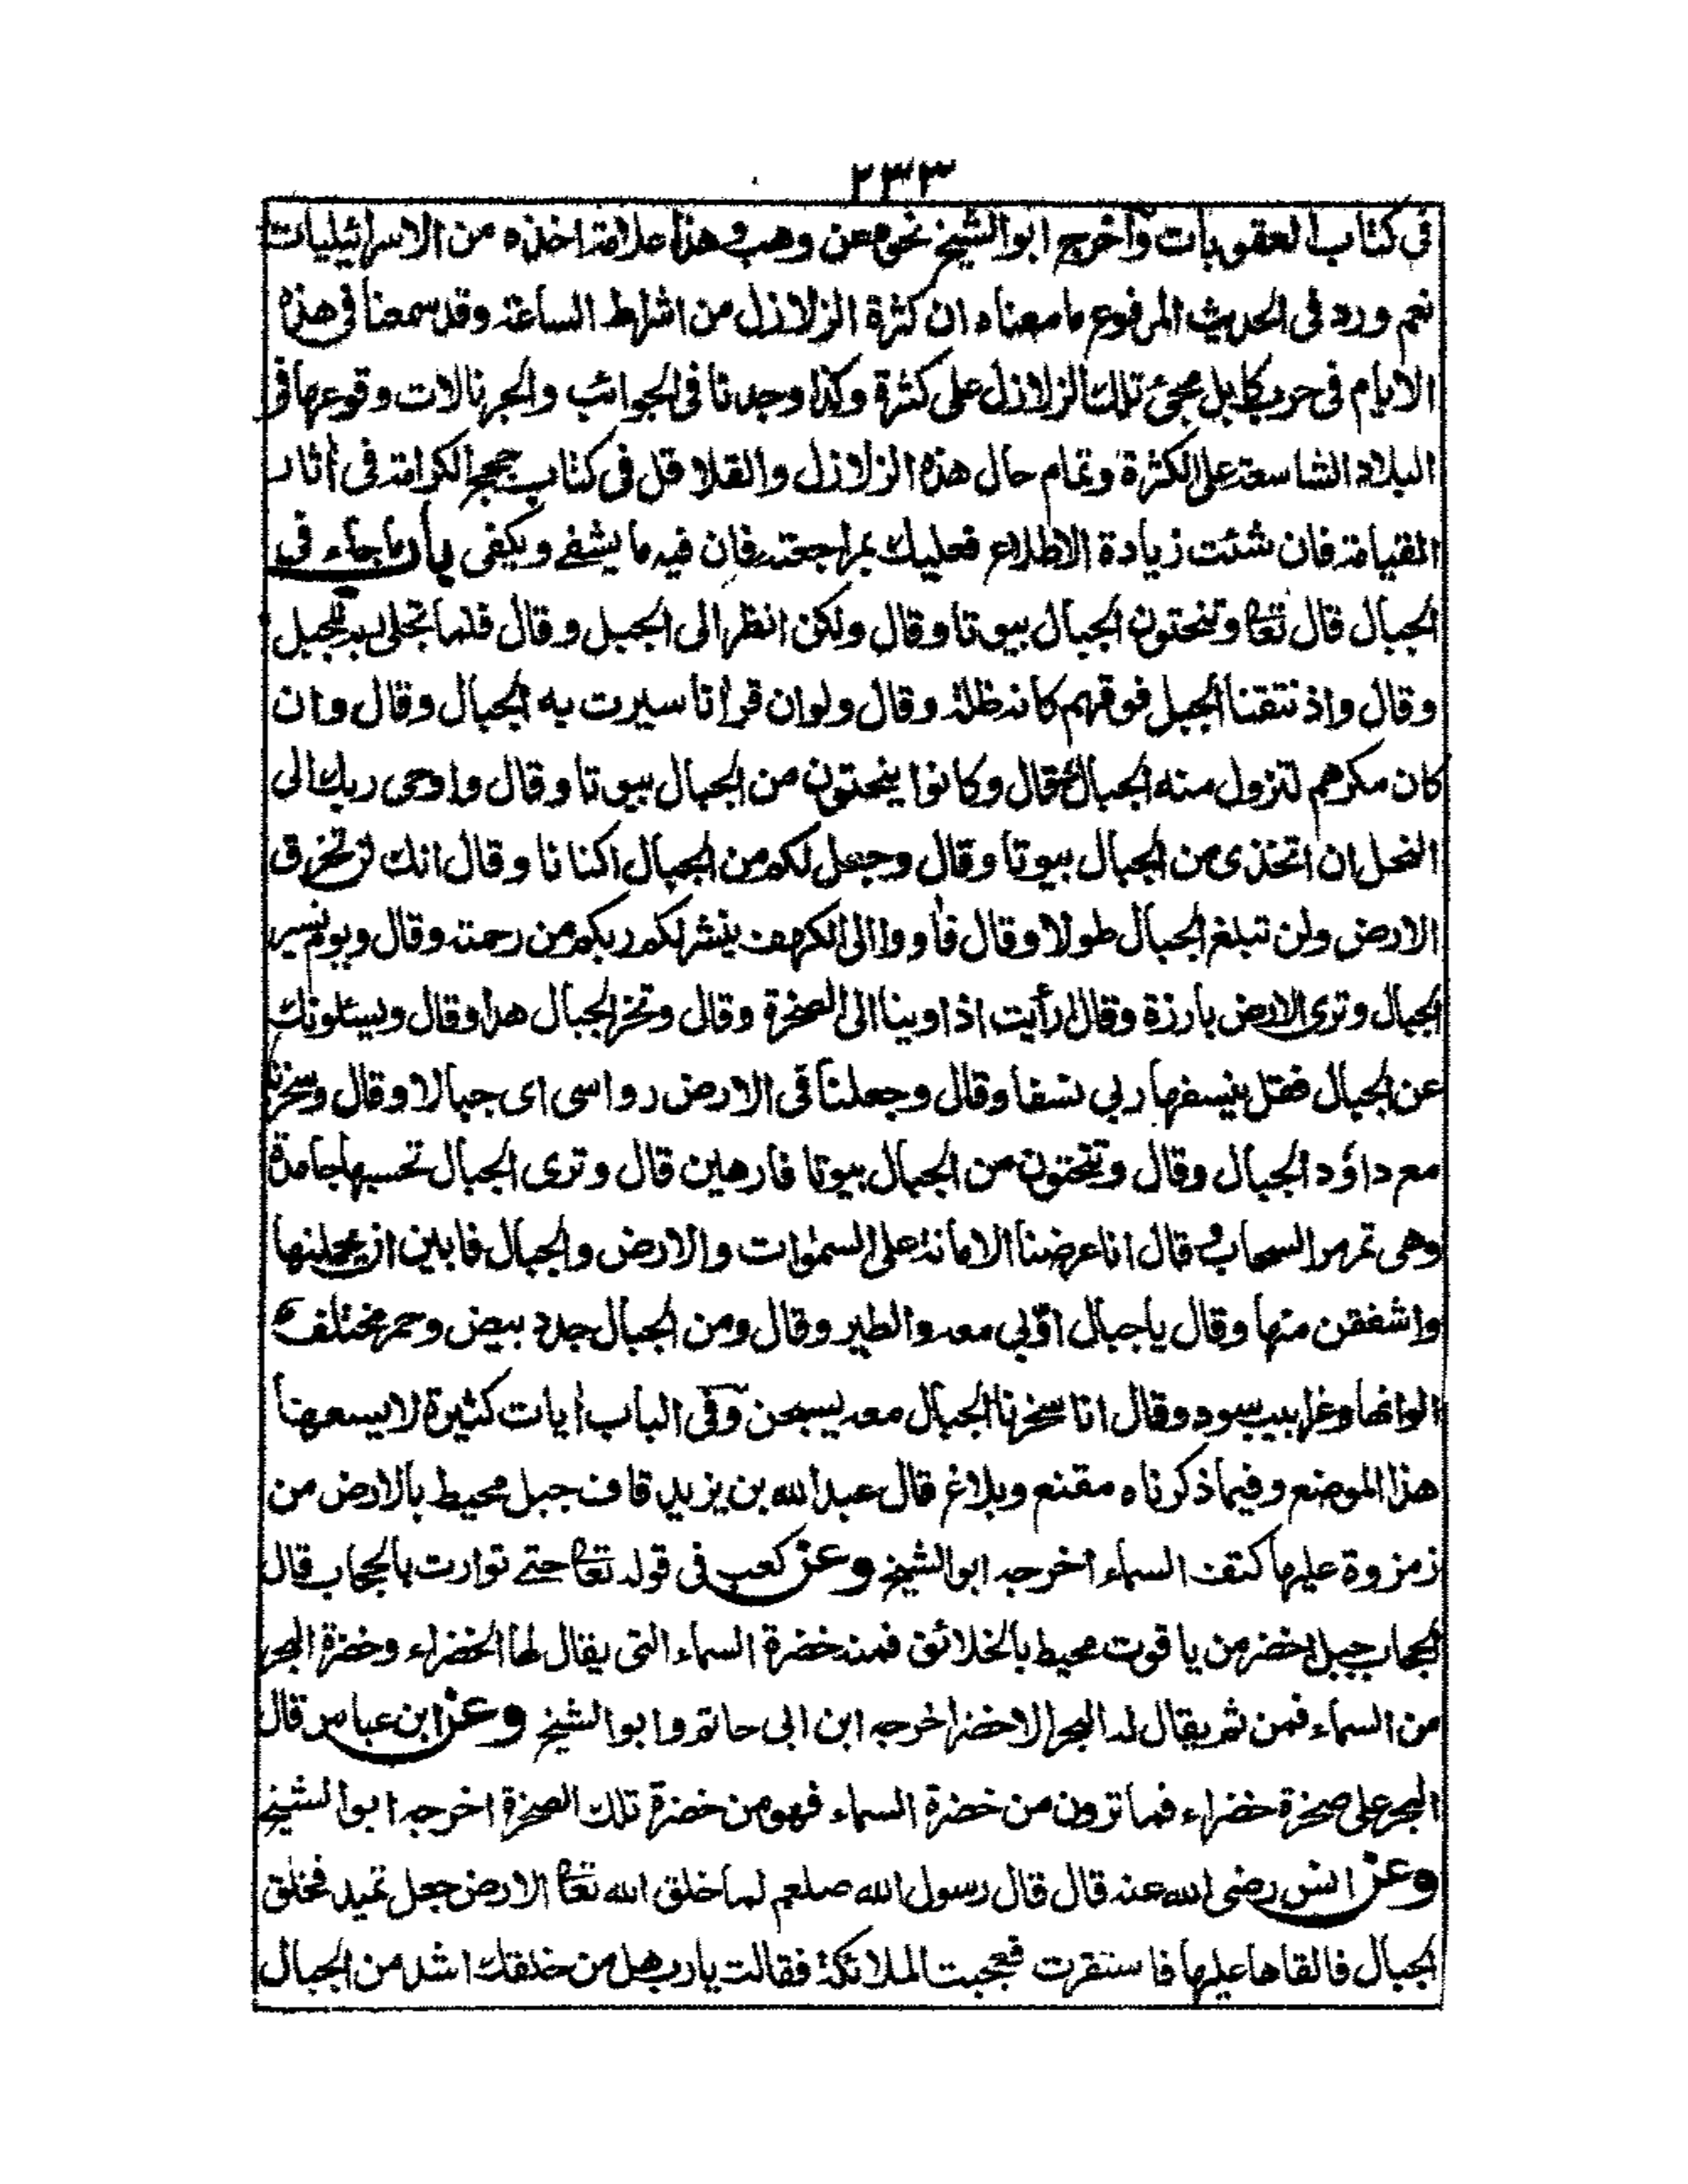 ٢٣٣
فى كتاب العقوبات وأخرج ابو الشيخ نحوه عن وهب وهذا علامة اخذه من الاسرائيليات
نعم ورد فى الحديث المرفوع ما معناه ان كثرة الزلازل من اشراط الساعة وقد سمعنا فى هذه
الايام فى حرب كابل مجئ تلك الزلازل على كثرة وكذا وجدنا فى الجوائب والجرنالات وقوعها فى
البلاد الشاسعة على الكثرة وتمام حال هذه الزلازل والقلاقل فى كتاب حجج الكرامة فى أثار
القيامة فان شئت زيادة الاطلاع فعليك بمراجعته فان فيه ما يشفے ويكفى باب ما جاء فى
الجبال قال تعا وتنحتون الجبال بيوتا وقال ولكن انظر الى الجبل وقال فلما تجلى ربه للجبل
وقال واذ نتقنا الجبل فوقهم كانه ظلة وقال ولو ان قرأنا سيرت به الجبال وقال وان
كان مكرهم لتزول منه الجبال وقال وكانوا ينحتون من الجبال بيوتا وقال واوحى ربك الى
النحل ان اتخذى من الجبال بيوتا وقال وجعل لكم من الجبال اكنانا وقال انك لن تخرق
الارض ولن تبلغ الجبال طولا وقال فأووا الى الكهف ينشر لكم ربكم من رحمته وقال ويوم نسير
الجبال وترى الارض بارزة وقال ارأيت اذ اوينا الى الصخرة وقال وتخر الجبال هدا وقال ويسئلونك
عن الجبال فقل ينسفها ربي نسفا وقال وجعلنا فى الارض رواسى اى جبالا وقال وسخرنا
مع داؤد الجبال وقال وتنحتون من الجبال بيوتا فارهين قال وترى الجبال تحسبها جامدة
وهى تمر مر السحاب وقال انا عرضنا الامانة على السموات والارض والجبال فابين ان يحملنها
واشفقن منها وقال ياجبال اوّبي معه والطير وقال ومن الجبال جدد بيض وحمر مختلف
الوانها وغرابيب سود وقال انا سخرنا الجبال معه يسبحن وفى الباب أيات كثيرة لا يسعها
هذا الموضع وفيما ذكرناه مقنع وبلاغ قال عبد الله بن يزيد قاف جبل محيط بالارض من
زمزوة عليها كتف السماء اخرجه ابو الشيخ وعن كعب فى قوله تعا حتے توارت بالحجاب قال
الحجاب جبل اخضر من ياقوت محيط بالخلائق فمنه خضرة السماء التى يقال لها الخضراء وخضرة البحر
من السماء فمن ثم يقال له البحر الاخضر اخرجه ابن ابى حاتم وابو الشيخ وعن ابن عباس قال
البحر على صخرة خضراء فما ترون من خضرة السماء فهو من خضرة تلك الصخرة اخرجه ابو الشيخ
وعن انس رضى الله عنه قال قال رسول الله صلعم لما خلق الله تعا الارض جعل تميد فخلق
الجبال فالقاها عليها فاستقرت فعجبت الملائكة فقالت يارب هل من خلقك اشد من الجبال